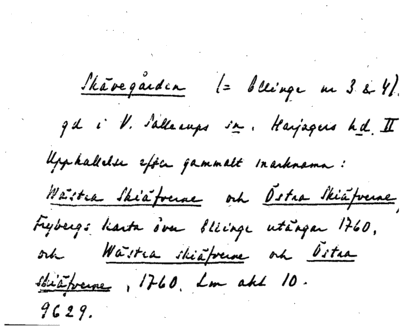 Skävegården (= Ellinge nr 3 & 4).
gd i V. Sallerups sn. Harjagers hd. II
Upphallelse efter gammalt marknamn:
Wästra Skiäfverne och Östra Skiäfverne,
Frybergs karta över Ellinge utängar 1760,
och Wästra skiäfverne och Östra
skiäfverne, 1760. Lm akt 10.
9629.